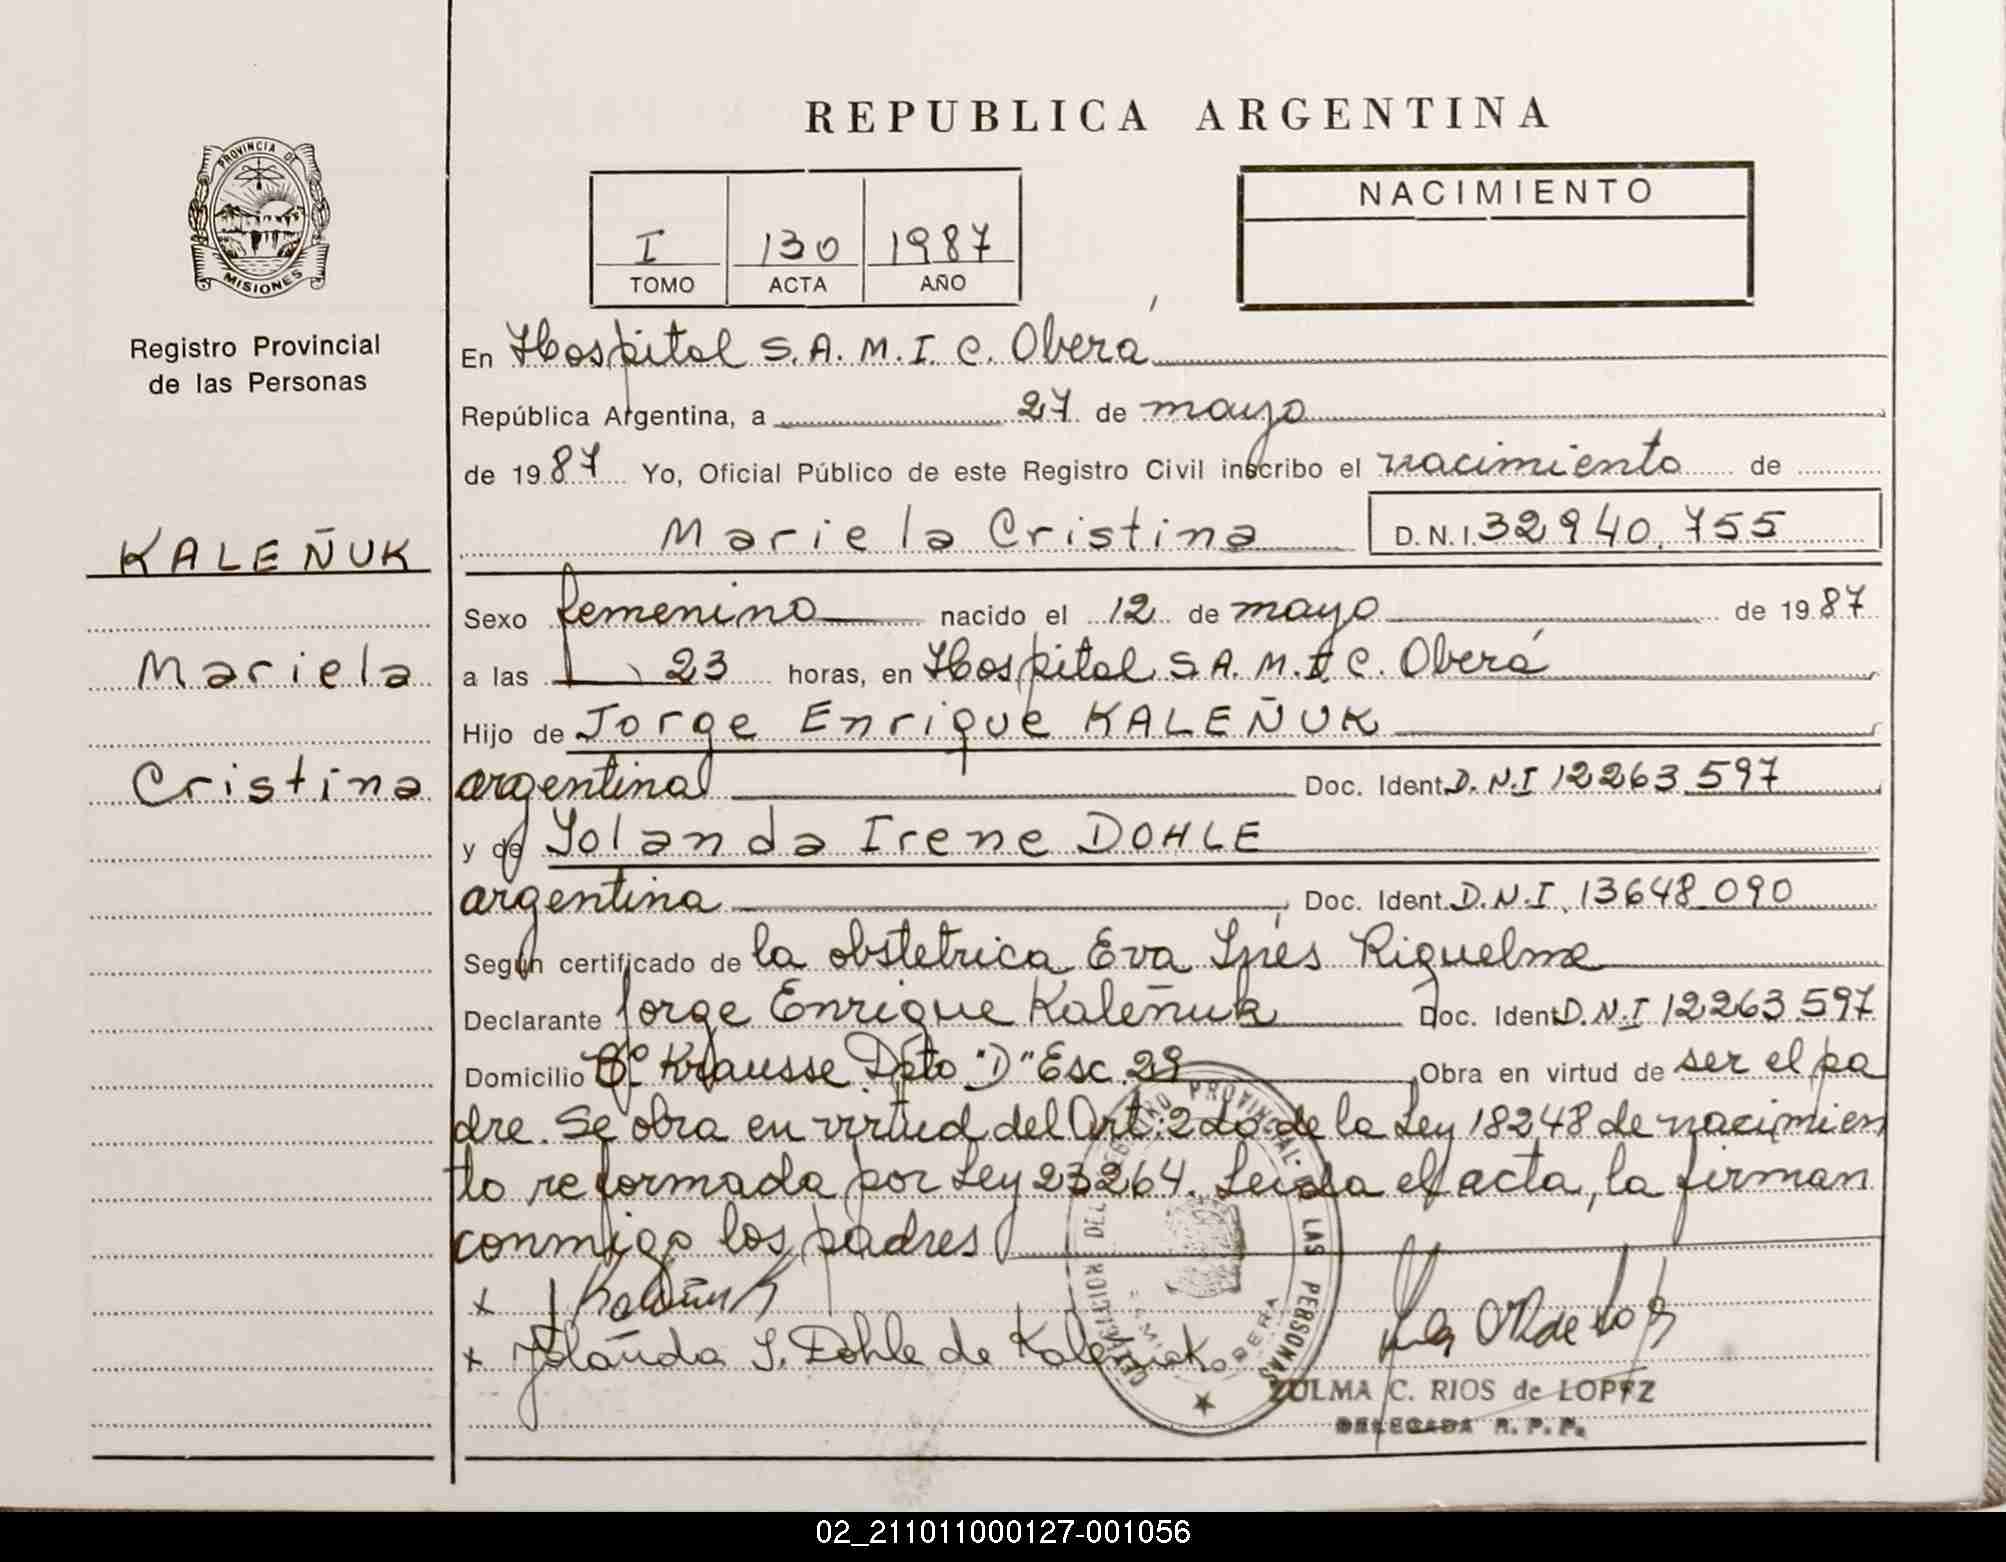 REPUBLICA ARGENTINA
PROVINCIA DE
MISIONES
Registro Provincial
de las Personas
I 130 1987
TOMO ACTA AÑO
NACIMIENTO
En Hospital S.A.M.I.C. Oberá
República Argentina, a 27 de mayo
de 1987 Yo, Oficial Público de este Registro Civil inscribo el nacimiento de
KALEÑUK
Mariela Cristina D.N.I. 32940.755
Sexo femenino nacido el 12 de mayo de 1987
Mariela
a las 23 horas, en Hospital S.A.M.I.C. Oberá
Hijo de Jorge Enrique KALEÑUK
Cristina
argentina Doc. Ident. D.N.I 12263.597
y de Yolanda Irene DOHLE
argentina Doc. Ident. D.N.I. 13648.090
Según certificado de la obstetrica Eva Inés Riquelme
Declarante Jorge Enrique Kaleñuk Doc. Ident. D.N.I 12263.597
Domicilio Bº Krausse Dpto "D" Esc. 29 Obra en virtud de ser el pa
dre. Se obra en virtud del Art: 2do de la Ley 18248 de nacimien
to reformada por Ley 23264. Leida el acta, la firman
conmigo los padres
x J Kaleñuk
x Yolanda I. Dohle de Kaleñuk
DELEGACION DEL REGISTRO PROVINCIAL DE LAS PERSONAS
OBERA
ZULMA C. RIOS de LOPEZ
DELEGADA R. P. P.
02_211011000127-001056